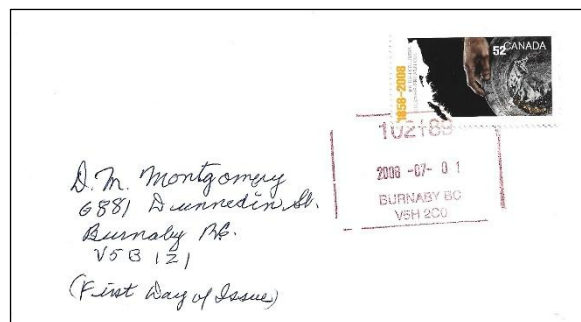 52 CANADA
1858-2008
102189
2008 -07- 01
BURNABY BC
V5H 2C0
D. M. Montgomery
6881 Dunnedin St.
Burnaby BC.
V5B 1Z1
(First Day of Issue)